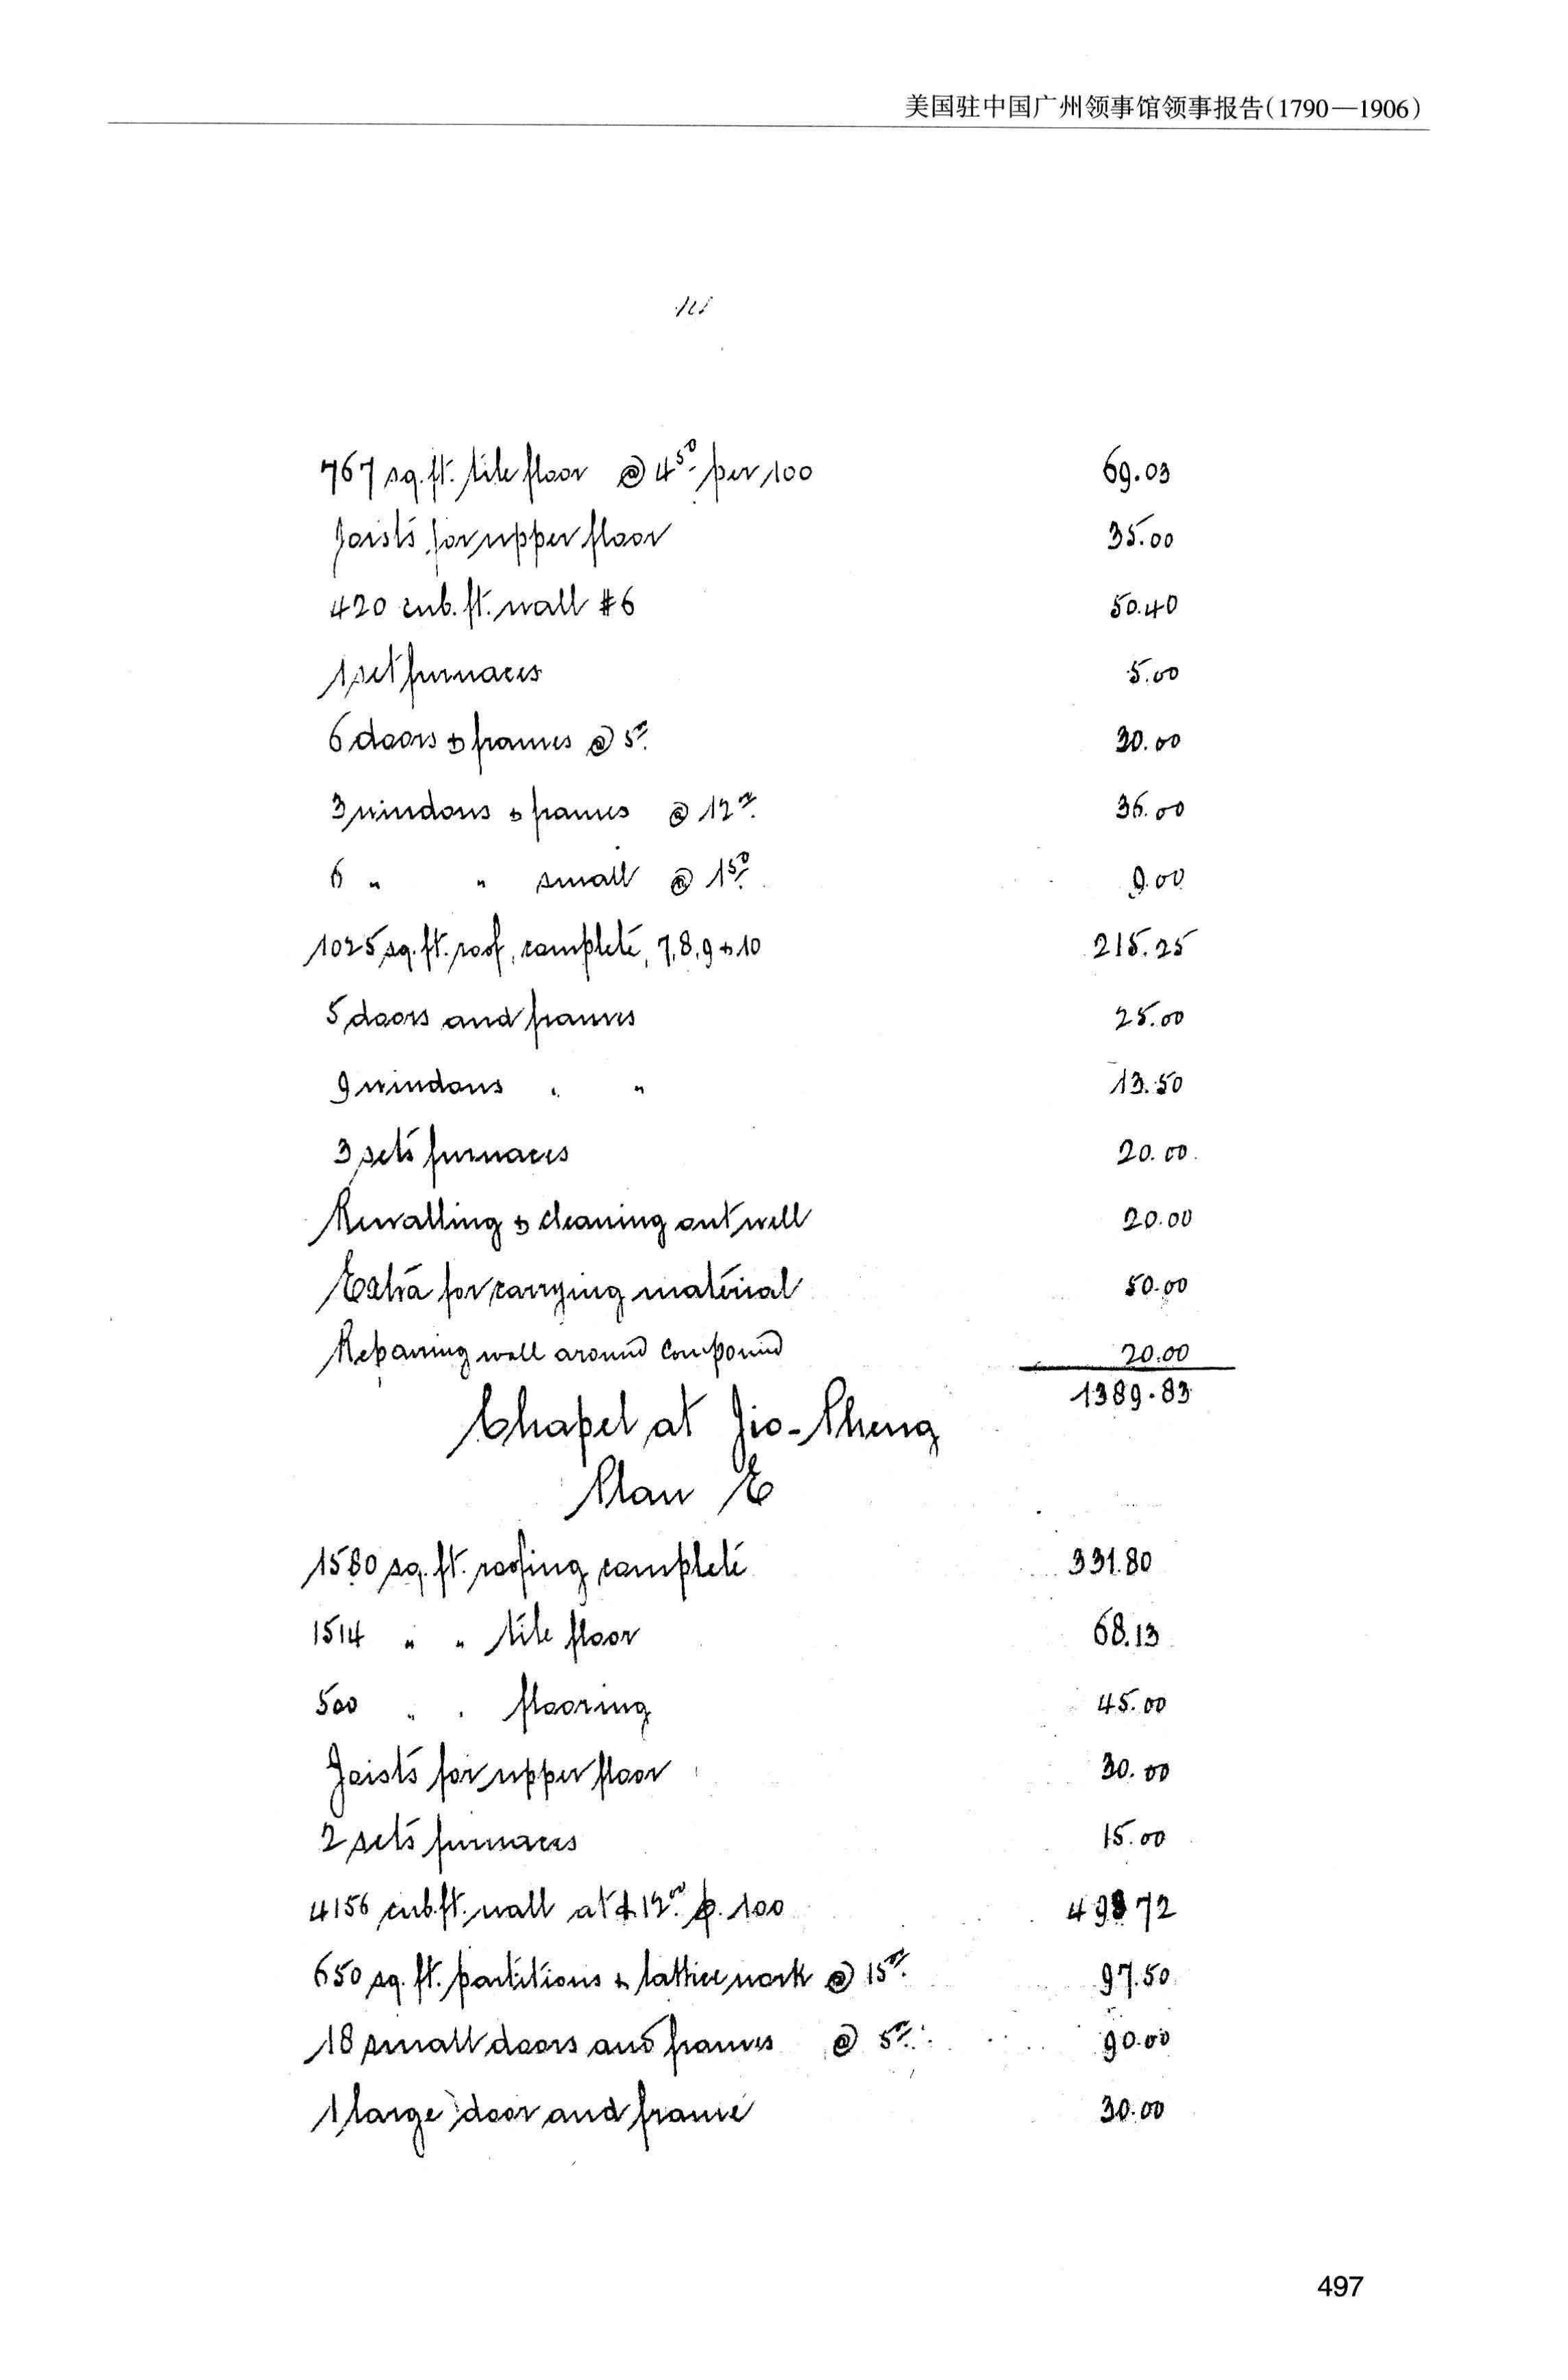 美国驻中国广州领事馆领事报告(1790—1906)
767 sq. ft. tile floor @ 4.50 per 100 69.03
Joists for upper floor 35.00
420 cub. ft. wall #6 50.40
1 set furnaces 5.00
6 doors & frames @ 5.00 30.00
3 windows & frames @ 12.00 36.00
6 " " small @ 1.50 9.00
1025 sq. ft. roof, complete, 7, 8, 9 & 10 215.25
5 doors and frames 25.00
9 windows " " 13.50
3 sets furnaces 20.00
Rewalling & cleaning out well 20.00
Extra for carrying material 50.00
Repairing wall around compound 20.00
1389.83
Chapel at Jio-Sheng
Plan E
1580 sq. ft. roofing complete 331.80
1514 " " tile floor 68.13
500 " " flooring 45.00
Joists for upper floor 30.00
2 sets furnaces 15.00
4156 cub. ft. wall at $12.00 p. 100 498 72
650 sq. ft. partitions & lattice work @ 15.00 97.50
18 small doors and frames @ 5.00 90.00
1 large door and frame 30.00
497